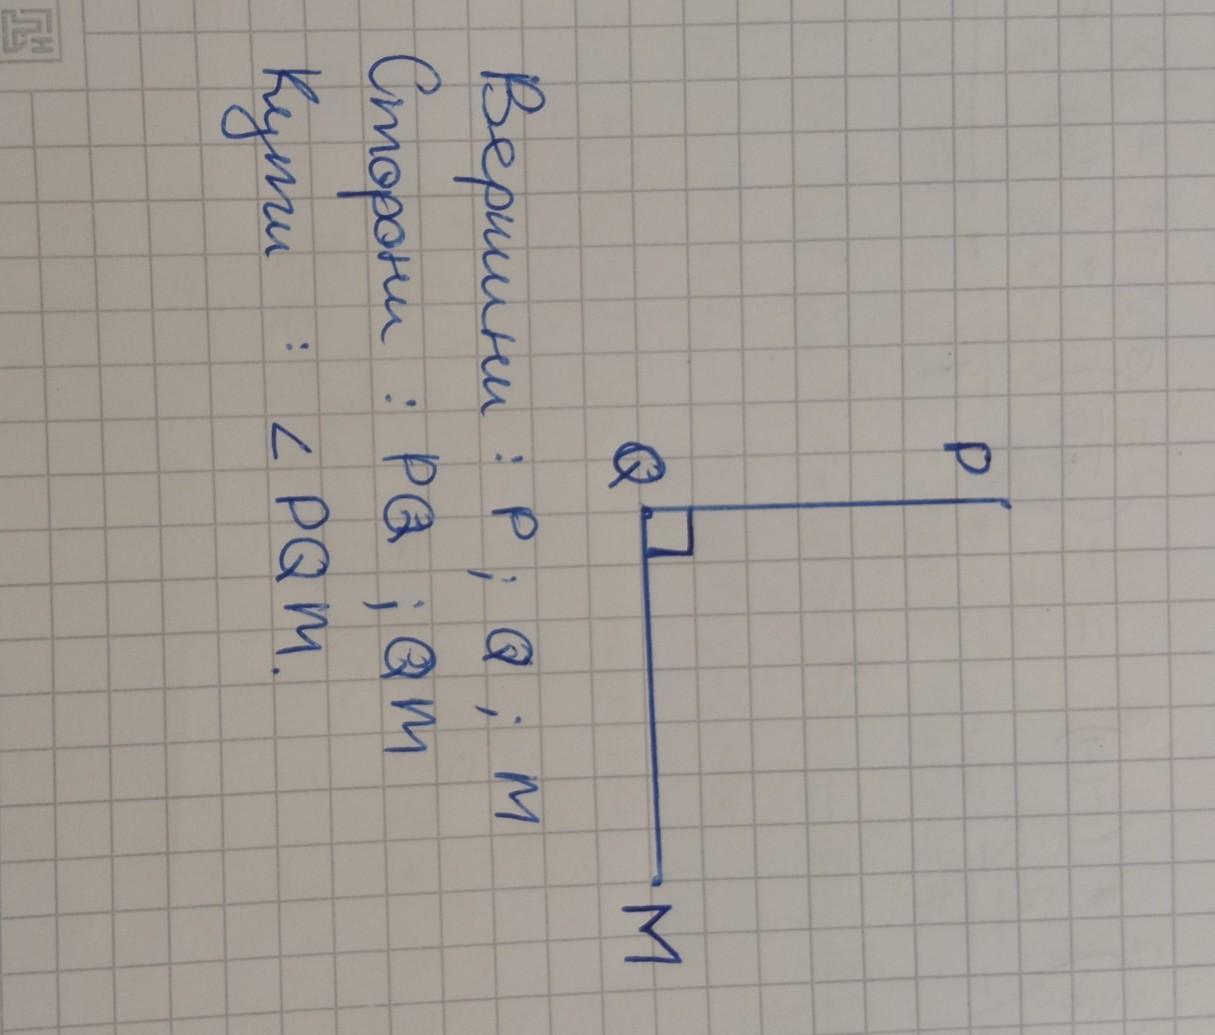 P
Q
M
Вершини : P ; Q ; M
Сторони : PQ ; QM
Кути : ∠ PQM.